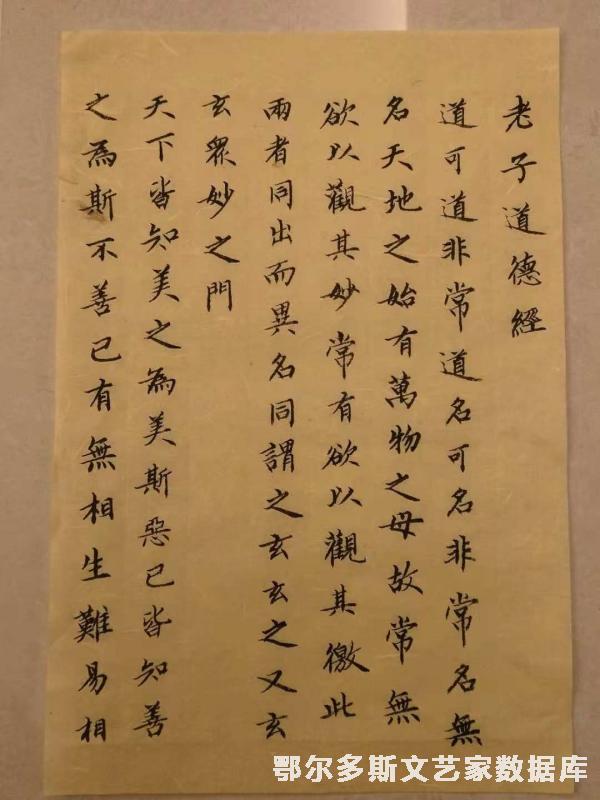 老子道德經
道可道非常道名可名非常名無
名天地之始有萬物之母故常無
欲以觀其妙常有欲以觀其徼此
兩者同出而異名同謂之玄玄之又玄
玄眾妙之門
天下皆知美之為美斯惡已皆知善
之為斯不善已有無相生難易相
鄂尔多斯文艺家数据库